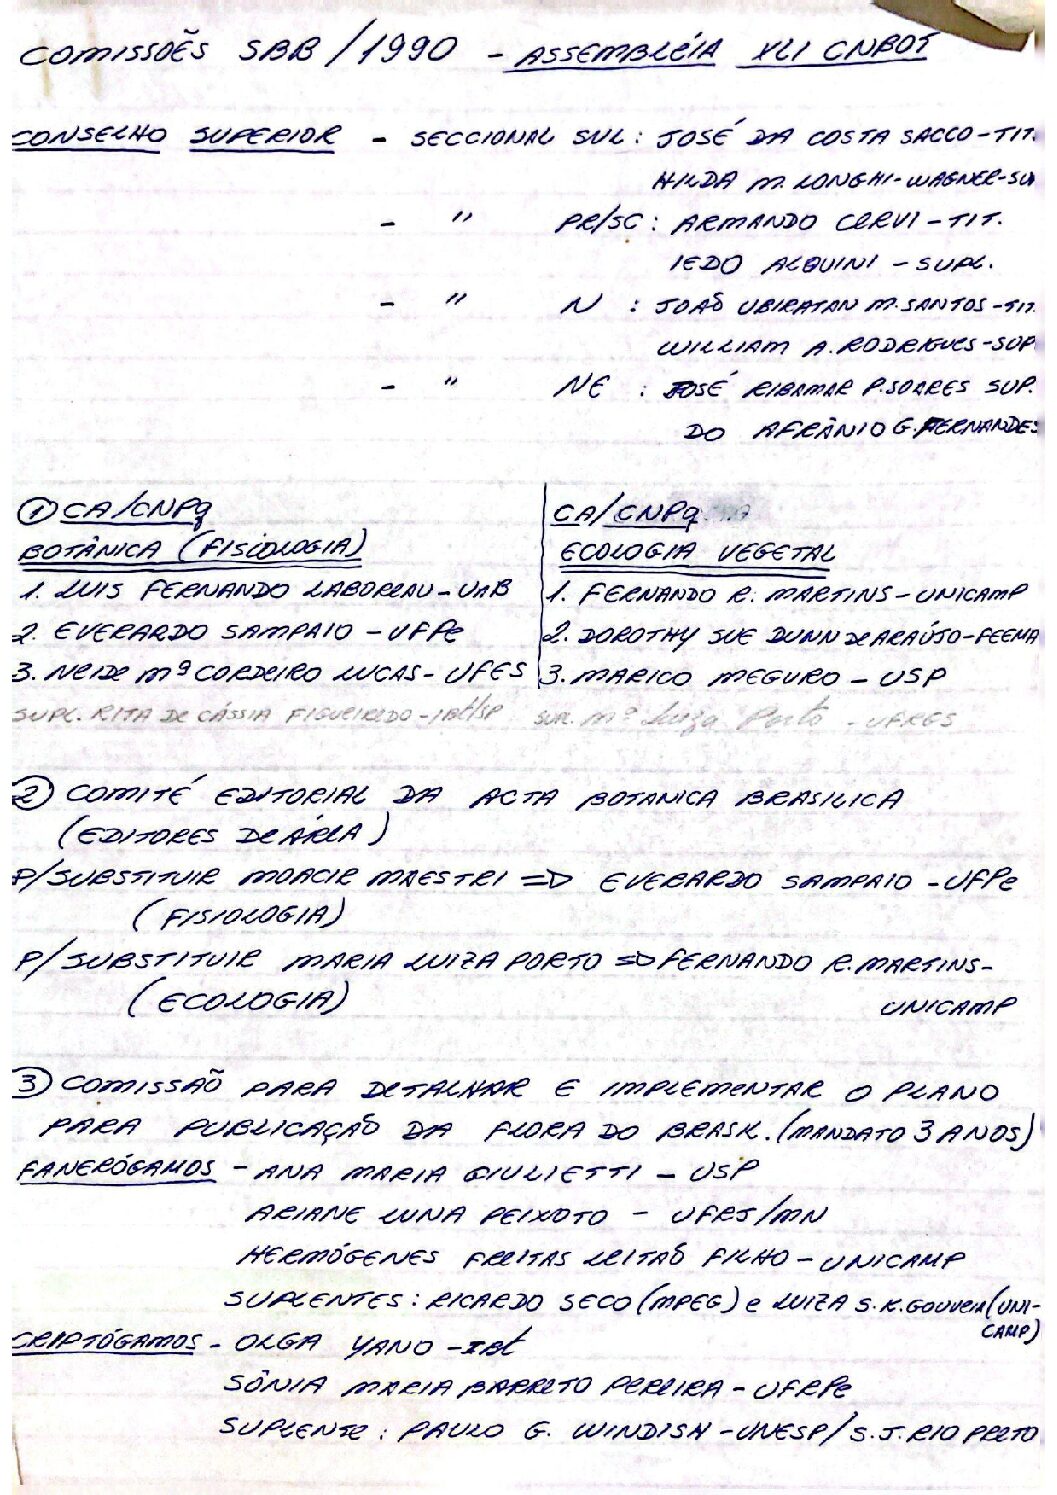 COMISSOẼS SBB/1990 - ASSEMBLÉIA XLI CNBOT
CONSELHO SUPERIOR - SECCIONAL SUL: JOSÉ DA COSTA SACCO-TIT.
HILDA M. LONGHI-WAGNER-SU
- " PR/SC: ARMANDO CERVI-TIT.
IEDO ALQUINI-SUPL.
- " N : JOAÕ UBIRATAN M. SANTOS-TIT.
WILLIAM A. RODRIGUES-SUP
- " NE : JOSÉ RIBAMAR P. SOARES SUP.
DO AFRÂNIO G. FERNANDES
① CA/CNPq
BOTÂNICA (FISIOLOGIA)
1. LUIS FERNANDO LABORIAU-UNB
2. EVERARDO SAMPAIO-UFPe
3. NEIDE Mª CORDEIRO LUCAS-UFES
SUPL. RITA DE CÁSSIA FIGUEIREDO-IBt/SP
CA/CNPq
ECOLOGIA VEGETAL
1. FERNANDO R. MARTINS-UNICAMP
2. DOROTHY SUE DUNN DE ARAÚJO-FEEMA
3. MARICO MEGURO-USP
SUP. Mª Luiza Porto-UFRGS
② COMITÉ EDITORIAL DA ACTA BOTANICA BRASILICA
(EDITORES DE ÁREA)
P/SUBSTITUIR MOACIR MAESTRI => EVERARDO SAMPAIO-UFPe
(FISIOLOGIA)
P/SUBSTITUIR MARIA LUIZA PORTO => FERNANDO R. MARTINS-
(ECOLOGIA) UNICAMP
③ COMISSAÕ PARA DETALHAR E IMPLEMENTAR O PLANO
PARA PUBLICAÇAÕ DA FLORA DO BRASIL. (MANDATO 3 ANOS)
FANERÓGAMOS - ANA MARIA GIULIETTI - USP
ARIANE LUNA PEIXOTO - UFRJ/MN
HERMÓGENES FREITAS LEITAÕ FILHO-UNICAMP
SUPLENTES: RICARDO SECO (MPEG) e LUIZA S. K. GOUVEIA (UNI-
CAMP)
CRIPTÓGAMOS - OLGA YANO-IBt
SÔNIA MARIA BARRETO PEREIRA-UFRPe
SUPLENTE: PAULO G. WINDISH-UNESP/S. J. RIO PRETO